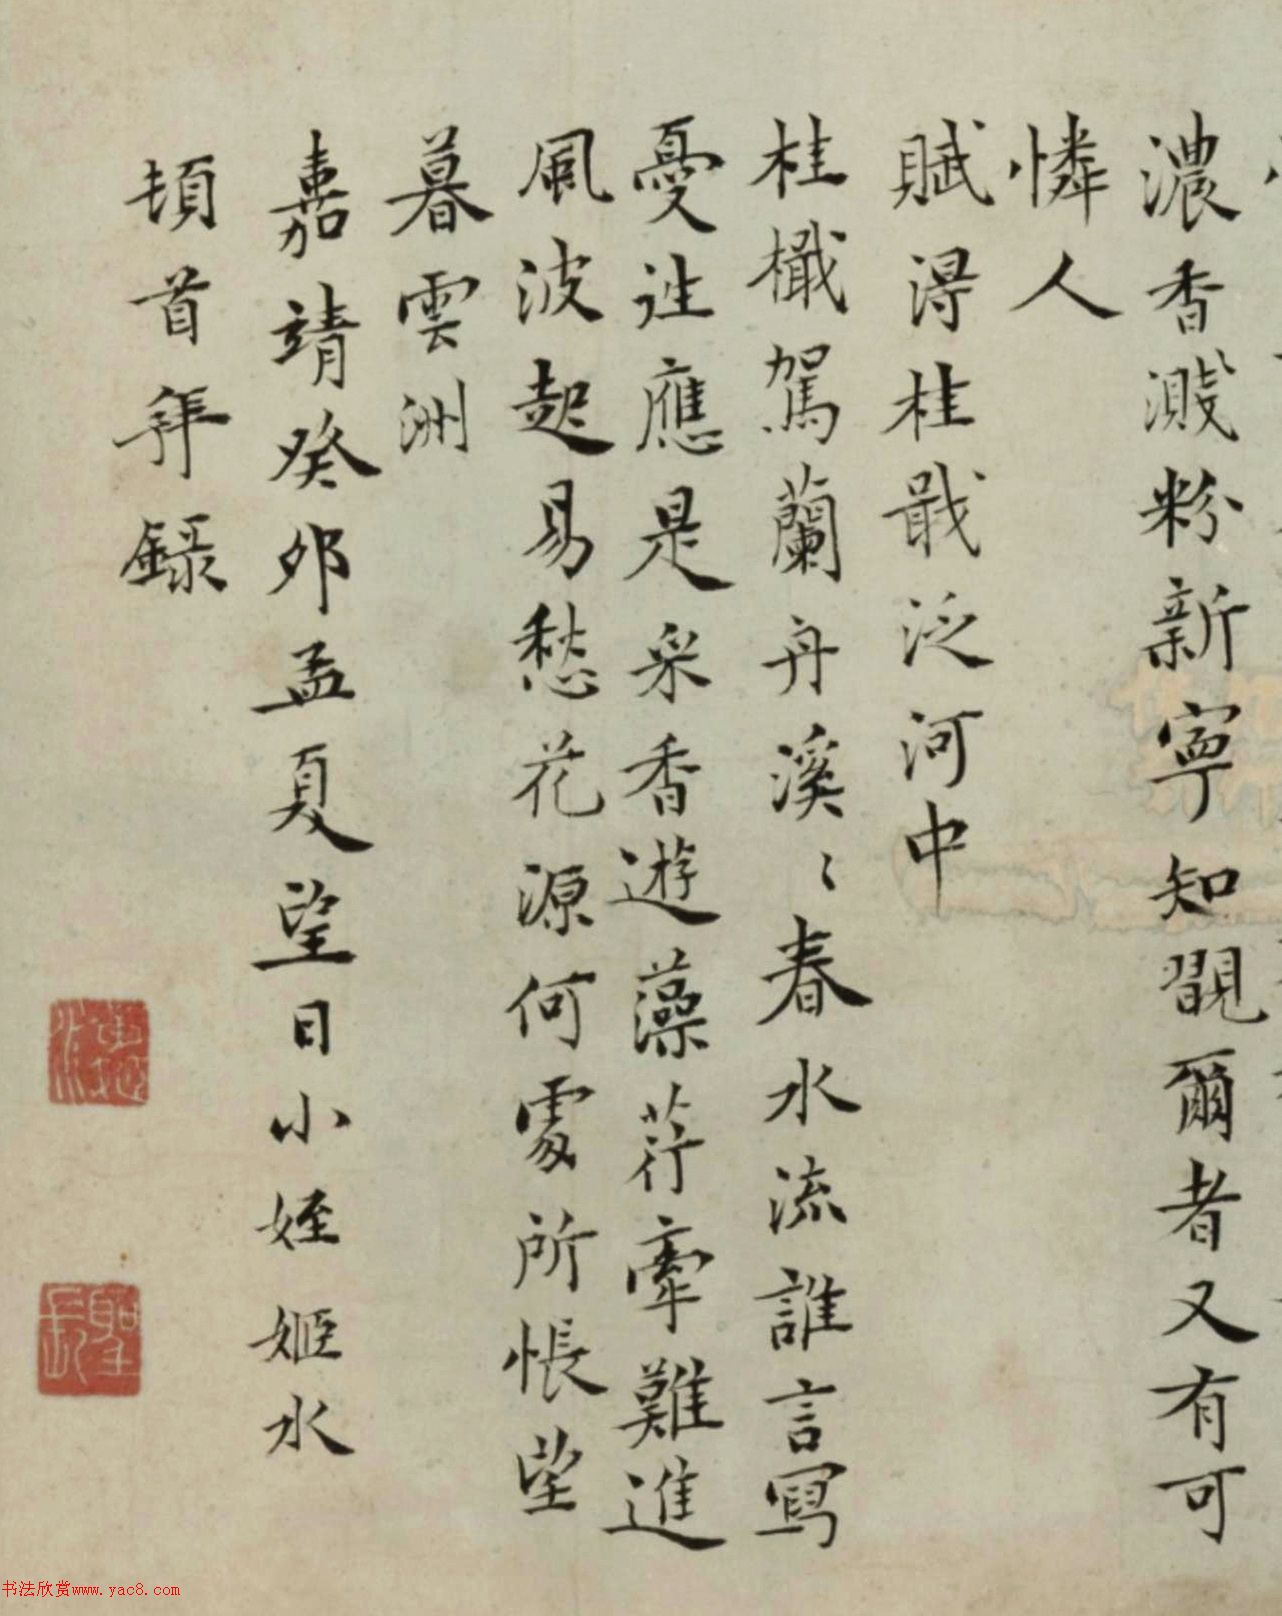 濃香濺粉新寧知覯爾者又有可
憐人
賦得桂戢泛河中
桂檝駕蘭舟溪〻春水流誰言寫
憂迬應是采香遊藻荇牽難進
風波起易愁花源何處所悵望
暮雲洲
嘉靖癸卯孟夏望日小姪姬水
頓首拜錄
书法欣赏www.yac8.com